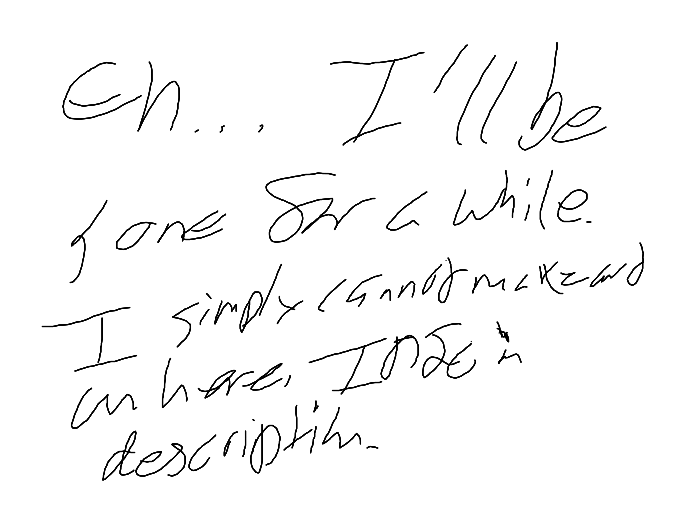 Eh... I'll be
gone for a while.
I simply cannot make and
on here. Info in
description.